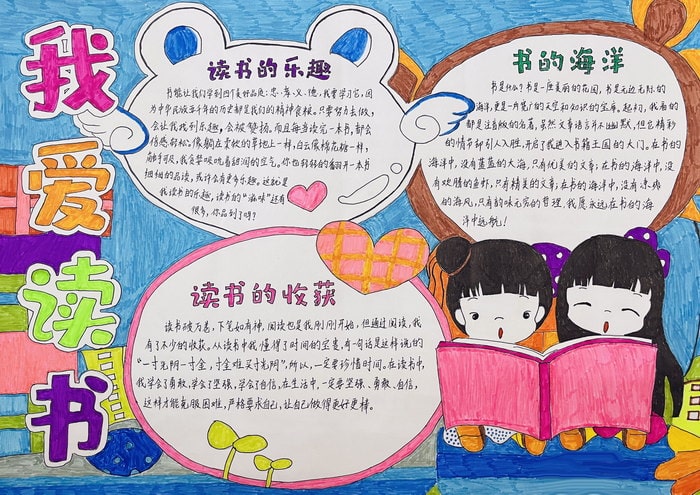 我爱读书
读书的乐趣
书能让我们学到四个美好品质:忠、孝、义、德,我要学习它,因
为中华民族五千年的历史都是我们的精神食粮。只要努力去做,
会让我感到乐趣,会被赞扬,而且每当读完一本书,都会
倍感轻松,像躺在青牧的草地上一样,白云像棉花糖一样,
触手可及,我贪婪吮吸着甜润的空气。你也轻轻的翻开一本书
细细的品读,或许会有更多乐趣。这就是
我读书的乐趣,读书的“滋味”还有
很多,你品到了吗?
书的海洋
书是什么?书是一座美丽的花园,书是无边无际的
海洋,更是一片宽广的天空和知识的宝库。起初,我看的
都是注音版的名著,虽然文章语言并不幽默,但它精彩
的情节却引人入胜,开启了我进入书籍王国的大门。在书的
海洋中,没有蓝蓝的大海,只有优美的文章;在书的海洋中,没
有欢腾的鱼虾,只有精美的文章;在书的海洋中,没有凉爽
的海风,只有韵味无穷的哲理。我愿永远在书的海
洋中远航!
读书的收获
读书破万卷,下笔如有神,阅读也是我刚刚开始,但通过阅读,我
有了不少的收获。从读书中我懂得了时间的宝贵,有一句话是这样说的
“一寸光阴一寸金,寸金难买寸光阴”,所以,一定要珍惜时间。在读书中,
我学会了勇敢,学会了坚强,学会了自信,在生活中,一定要坚强、勇敢、自信,
这样才能克服困难,严格要求自己,让自己做得更好更棒。